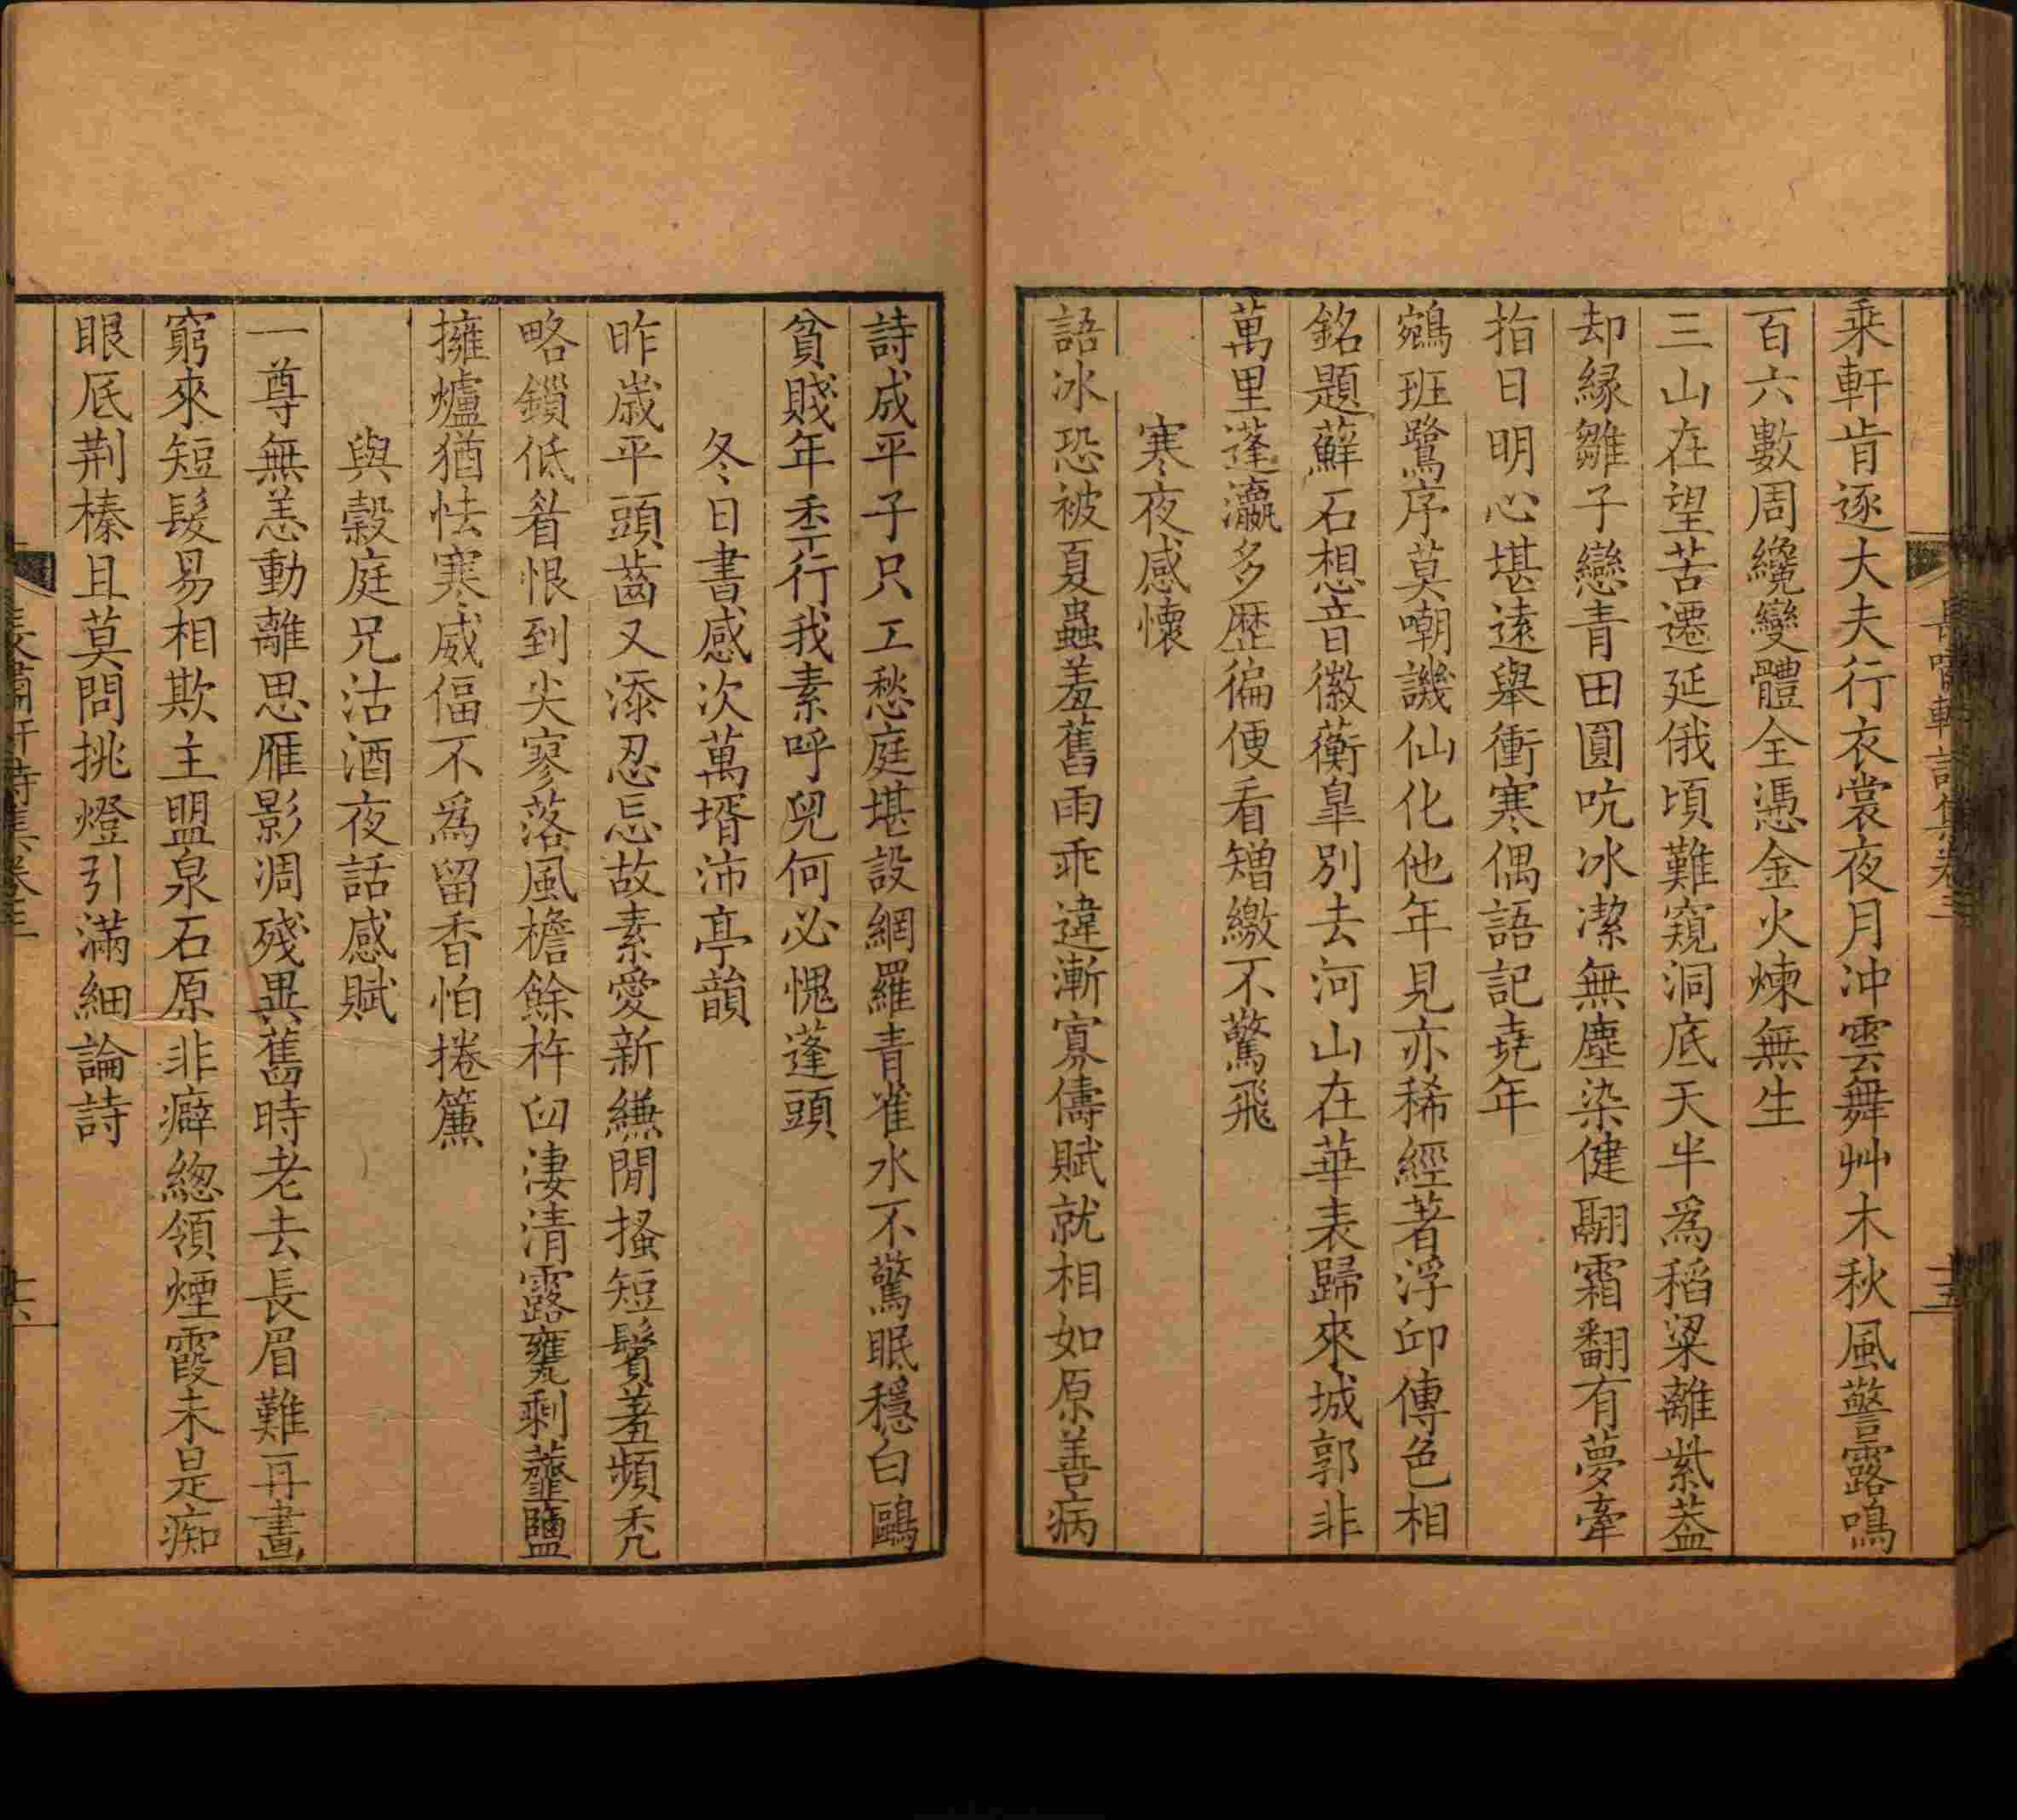 長嘯軒詩集卷三
十五
乘軒肯逐大夫行衣裳夜月沖雲舞艸木秋風警露鳴
百六數周纔變體全憑金火煉無生
三山在望苦遷延俄頃難窺洞底天半爲稻粱離紫葢
却緣雛子戀青田圓吭冰潔無塵染健翮霜翻有夢牽
指日明心堪遠舉衝寒偶語記堯年
鵷班鷺序莫嘲譏仙化他年見亦稀經著浮邱傳色相
銘題蘚石想音徽蘅皋別去河山在華表歸來城郭非
萬里蓬瀛多歷徧便看矰繳不驚飛
寒夜感懷
語冰恐被夏蟲羞舊雨乖違漸寡儔賦就相如原善病
詩成平子只工愁庭堪設網羅青雀水不驚眠穩白鷗
貧賤年季行我素呼兒何必愧蓬頭
冬日書感次萬壻沛亭韻
昨歲平頭齒又添忍忘故素愛新縑閒搔短鬢羞頻禿
略鎖低眉恨到尖寥落風檐餘杵臼淒清露甕剩虀鹽
擁爐猶怯寒威偪不爲留香怕捲簾
與穀庭兄沽酒夜話感賦
一尊無恙動離思雁影凋殘異舊時老去長眉難再畫
窮來短髮易相欺主盟泉石原非癖緫領煙霞未是痴
眼底荆榛且莫問挑燈引滿細論詩
長嘯軒詩集卷三
十六